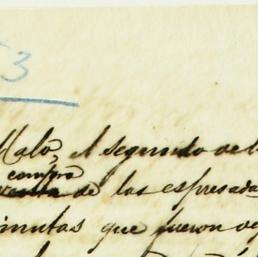 53
Malo, el segundo de l
compra
venta de las espresada
inutas que fueron